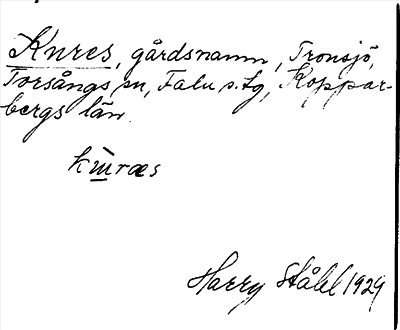 Knres, gårdsnamn, Tronsjö,
Torsångs sn, Falu s.tg, Koppar-
bergs län.
Harry Ståhl 1929